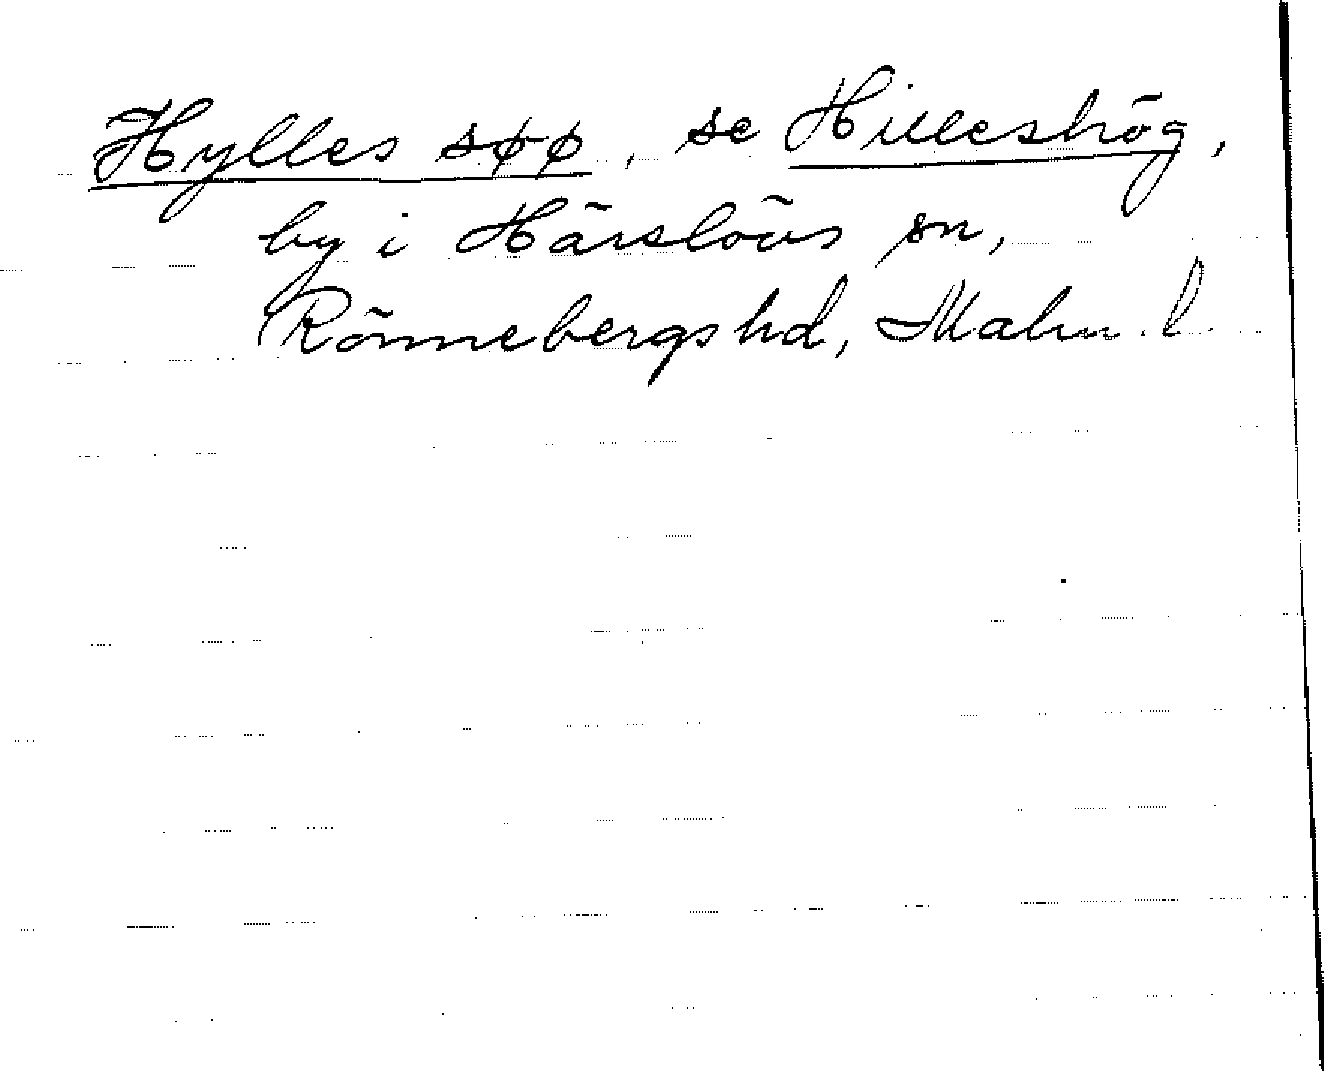 Hylles søø, se Hilleshög,
by i Härslövs sn,
Rönnebergs hd, Malm. l